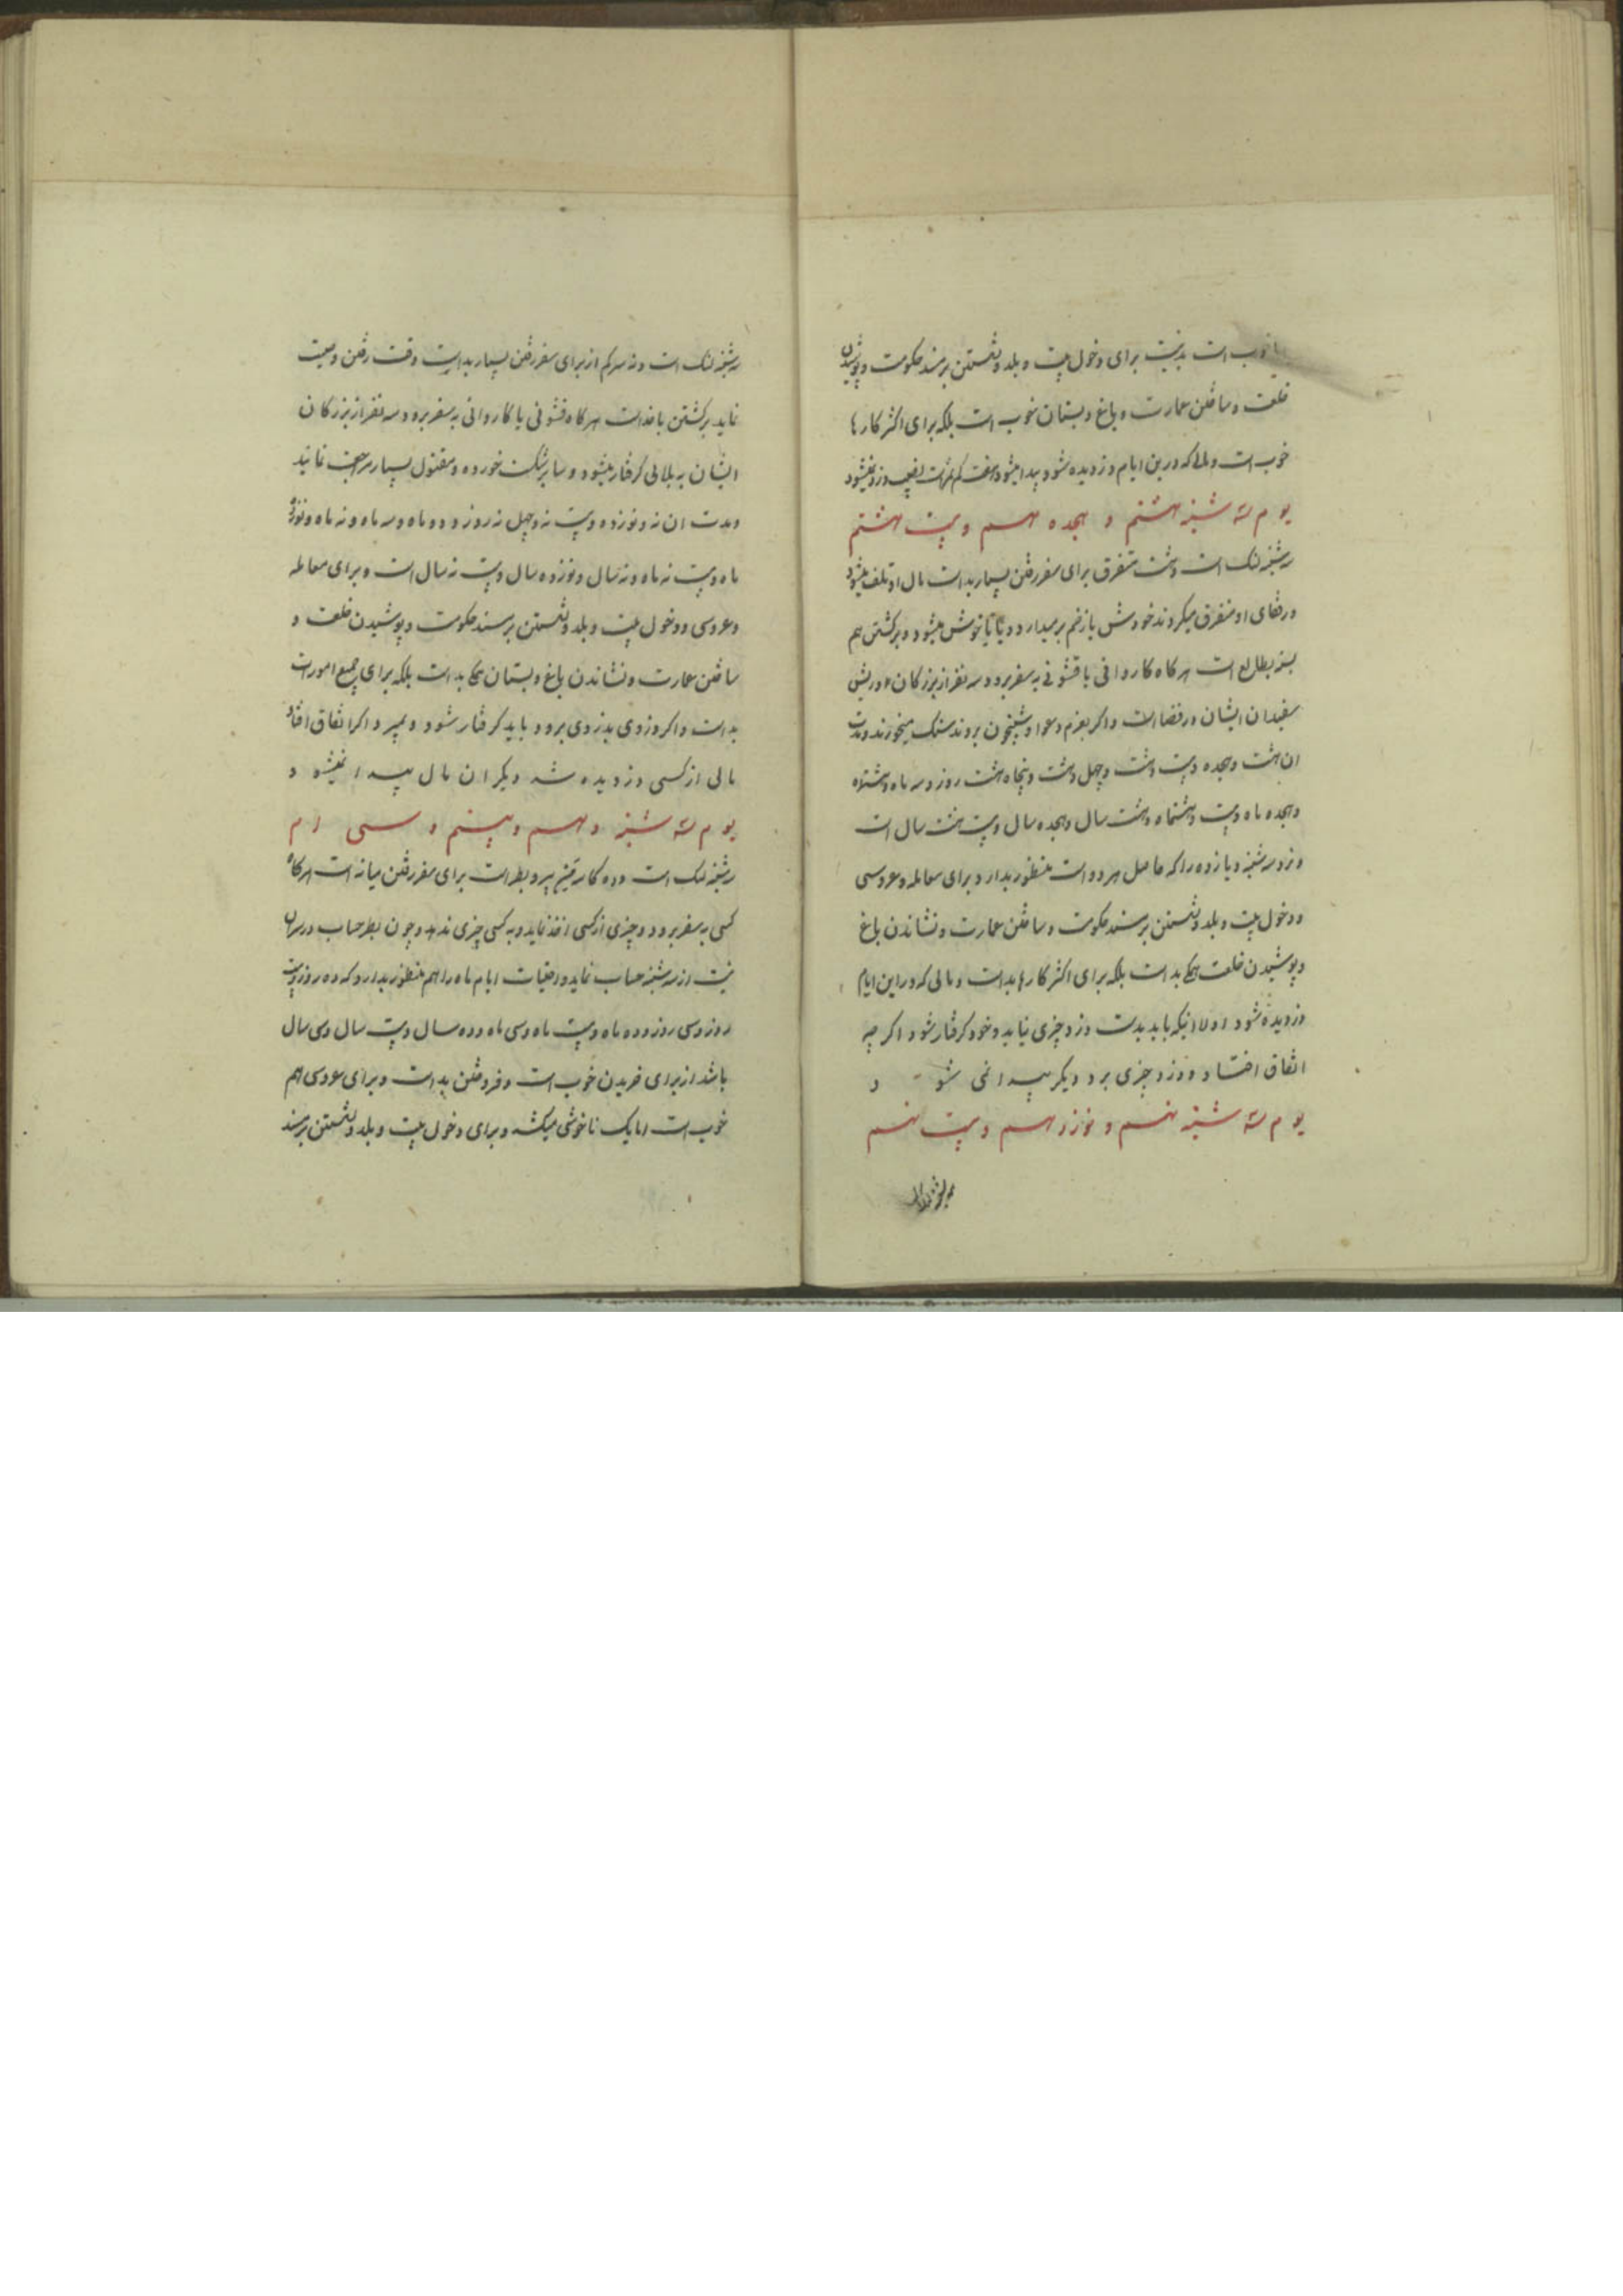 خوب است بد نیست برای دخول بیت و بلد و نشستن بر مسند حکومت و پوشیدن
خلعت و ساختن عمارت و باغ و بستان خوب است بلکه برای اکثر کارها
خوب است و مالی که درین ایام دزدیده شود پیدا میشود
یوم سه شنبه هشتم و هجدهم و بیست هشتم
سه شنبه لنک است و هشت متفرق برای سفر رفتن بسیار بد است مال او تلف میشود
و رفقای او متفرق میکردند خودش یا زخم برمیدارد و یا ناخوش میشود و برکشتن هم
بسته بطالع است هرکاه کاروانی یا قشونی به سفر برود سه نفر از بزرکان و ریش
سفیدان ایشان در قضا است و اکر بعزم دعوا و شبیخون بروند شکست میخورند و مدت
ان هشت و هجده و بیست و هشت و چهل و هشت و پنجاه هشت روز و سه ماه و هشتماه
و هجده ماه و بیست و هشتماه و هشت سال و هجده سال و بیست هشت سال است
و نزد سه شنبه و یازده را که حاصل هر دو است منظور بدارد برای معامله و عروسی
و دخول بیت و بلد و نشستن بر مسند حکومت و ساختن عمارت و نشاندن باغ
و پوشیدن خلعت همکی بد است بلکه برای اکثر کارها بد است و مالی که در این ایام
دزدیده شود اولا اینکه باید بدست دزد چیزی نیاید و خود کرفتار شود اکر چه
اتفاق افتاد و دزد چیزی برد دیکر پیدا نمی شود
یوم سه شنبه نهم و نوزدهم و بیست نهم
سه شنبه لنک است و نه سرکم از برای سفر رفتن بسیار بد است وقت رفتن وصیت
نماید برکشتن با خداست هرکاه قشونی یا کاروانی به سفر برود سه نفر از بزرکان
ایشان به بلائی کرفتار میشود و سایر شکست خورده و مقتول بسیار مراجعت نمایند
و مدت ان نه و نوزده و بیست نه و چهل نه روز و دو ماه و سه ماه و نه ماه و نوزده
ماه و بیست نه ماه و نه سال و نوزده سال و بیست نه سال است و برای معامله
و عروسی و دخول بیت و بلد و نشستن بر مسند حکومت و پوشیدن خلعت و
ساختن عمارت و نشاندن باغ و بستان همکی بد است بلکه برای جمیع امورات
بد است و اکر دزدی بدزدی برود باید کرفتار شود و بمیرد اکر اتفاق افتاد
مالی از کسی دزدیده شد دیکر ان مال پیدا نمیشود
یوم سه شنبه دهم و بیستم و سی ام
سه شنبه لنک است و ده برای سفر رفتن میانه است هرکاه
کسی به سفر برود و چیزی از کسی اخذ نماید و به کسی چیزی ندهد و چون
نیت از سه شنبه حساب نماید و رقیات ایام ماه را هم منظور بدارد که ده روز و بیست
روز و سی روز و ده ماه و بیست ماه و سی ماه و ده سال و بیست سال و سی سال
باشد از برای خریدن خوب است و فروختن بد است و برای عروسی هم
خوب است اما یک ناخوشی میکشد و برای دخول بیت و بلد و نشستن بر مسند